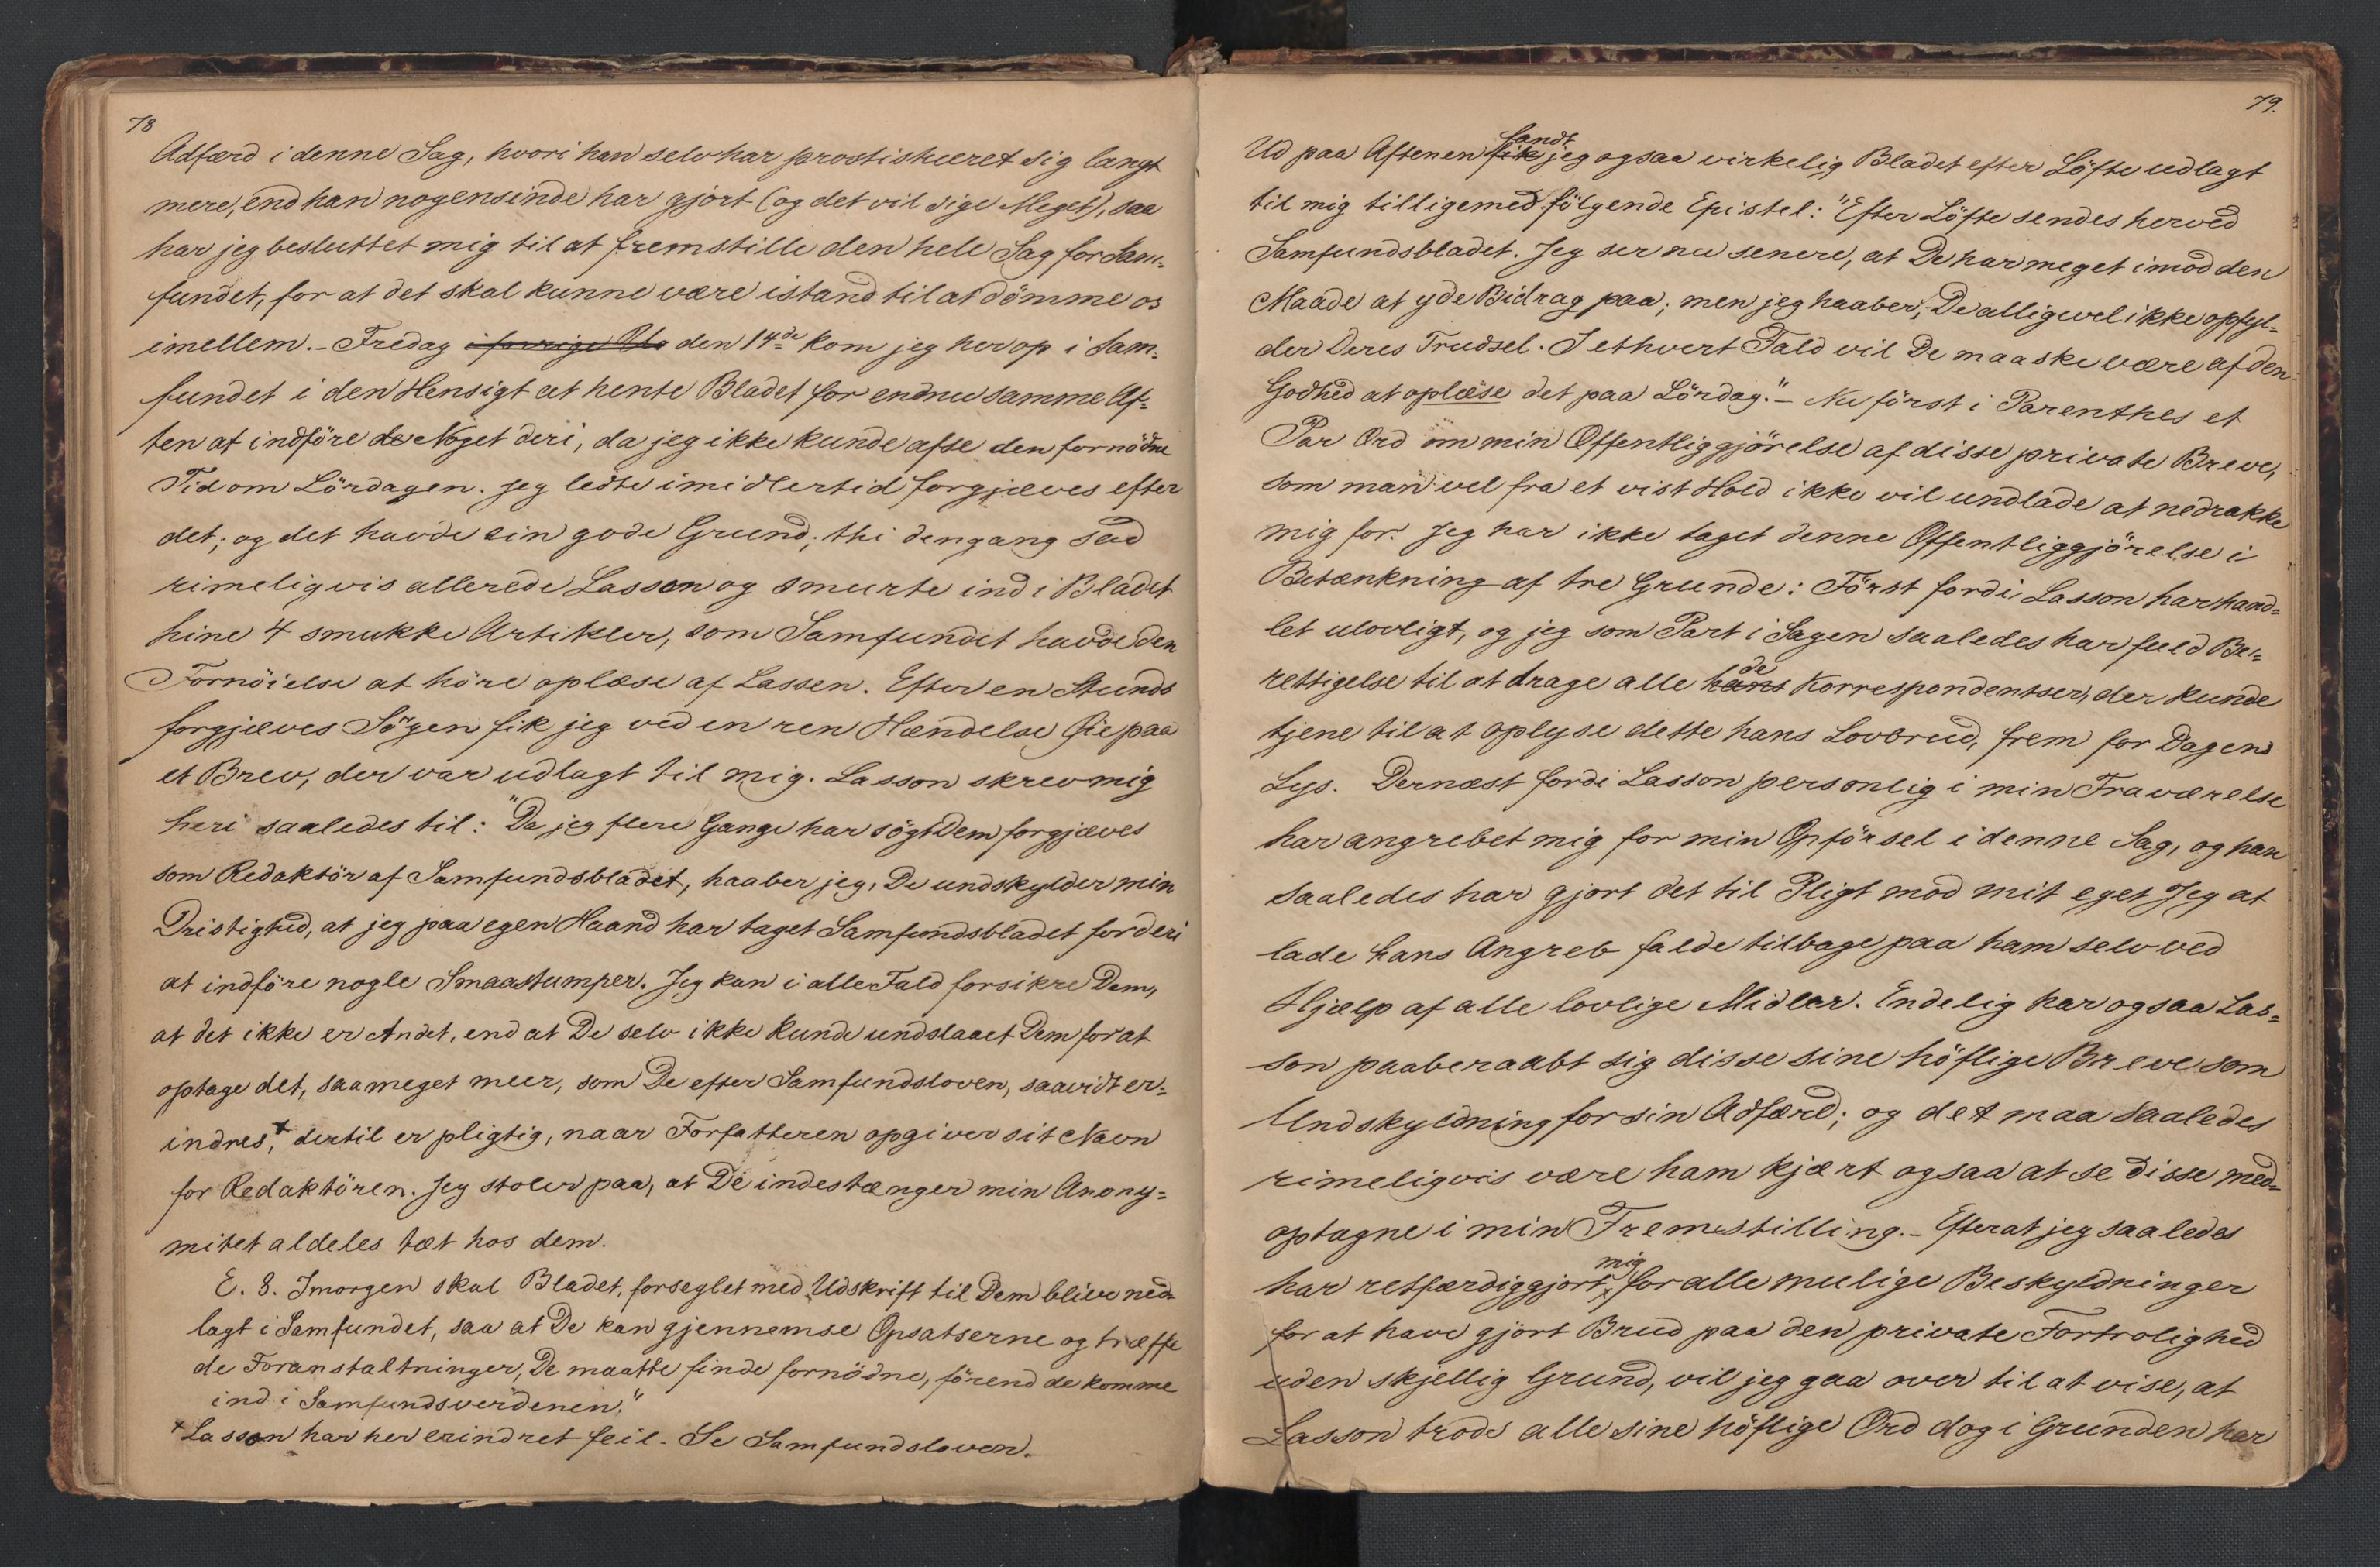 78
Adfærd i denne Sag, hvori han selv har prostistueret sig langt
mere, end han nogensinde har gjort (og det vil sige Meget), saa
har jeg besluttet mig til at fremstille den hele Sag for Sam=
fundet, for at det skal kunne være istand til at dömme os
imellem. - Fredag i forrige Uke den 14de kom jeg herop i Sam=
fundet i den Hensigt at hente Bladet for endnu samme Af=
ten at indföre de Noget deri, da jeg ikke kunde afse den fornödne
Tid om Lördagen. Jeg ledte imidlertid forgjæves efter
det; og det havde sin gode Grund; thi dengang sad
rimeligvis allerede Lasson og smurte ind i Bladet
hine 4 smukke Artikler, som Samfundet havde den
Fornöielse at höre oplæse af Lassen. Efter en Stunds
forgjæves Sögen fik jeg ved en ren Hændelse Öie paa
et Brev, der var udlagt til mig. Lasson skrev mig
heri saaledes til: "Da jeg flere Gange har sögt Dem forgjæves
som Redaktör af Samfundsbladet, haaber jeg, De undskylder min
Dristighed, at jeg paa egen Haand har taget Samfundsbladet for deri
at indföre nogle Smaastumper. Jeg kan i alle Fald forsikre Dem,
at det ikke er Andet, end at De selv ikke kunde undslaaet Dem for at
optage det, saameget meer, som De efter Samfundsloven, saavidt er=
indres,+ dertil er pligtig, naar Forfatteren opgiver sit Navn
for Redaktören. Jeg stoler paa, at De indestænger min Anony=
mitet aldeles tæt hos dem.
E. S. Imorgen skal Bladet, forseglet med Udskrift til Dem blive ned=
lagt i Samfundet, saa at De kan gjennemse Opsatserne og træffe
de Foranstaltninger, De maatte finde fornödne, förend de komme
ind i Samfundsverdenen."
+ Lasson har her erindret feil. Se Samfundsloven.
79.
Ud paa Aftenen fik fandt jeg ogsaa virkelig Bladet efter Löfte udlagt
til mig tilligemed fölgende Epistel: "Efter Löfte sendes herved
Samfundsbladet. Jeg ser nu senere, at De har meget imod den
Maade at yde Bidrag paa; men jeg haaber, De alligevel ikke opfyl=
der Deres Trudsel. I ethvert Fald vil De maaske være af den
Godhed at oplæse det paa Lördag." - Nu först i Parenthes et
Par Ord om min Offentliggjörelse af disse private Breve,
som man vel fra et vist Hold ikke vil undlade at nedrakke
mig for. Jeg har ikke taget denne Offentliggjörelse i
Betænkning af tre Grunde: Först fordi Lasson har hand=
let ulovligt, og jeg som Part i Sagen saaledes har fuld Be=
rettigelse til at drage alle hans de Korrespondentser, der kunde
tjene til at oplyse dette hans Lovbrud, frem for Dagens
Lys. Dernæst fordi Lasson personlig i min Fraværelse
har angrebet mig for min Opförsel i denne Sag, og han
saaledes har gjort det til Pligt mod mit eget Jeg at
lade hans Angreb falde tilbage paa ham selv ved
Hjælp af alle lovlige Midler. Endelig har ogsaa Las=
son paaberaabt sig disse sine höflige Breve som
Undskyldning for sin Adfærd; og det maa saaledes
rimeligvis være ham kjært ogsaa at se disse med=
optagne i min Fremstilling. - Efterat jeg saaledes
har retfærdiggjort mig for alle mulige Beskyldninger
for at have gjort Brud paa den private Fortrolighed
uden skjellig Grund, vil jeg gaa over til at vise, at
Lasson trods alle sine höflige Ord dog i Grunden har